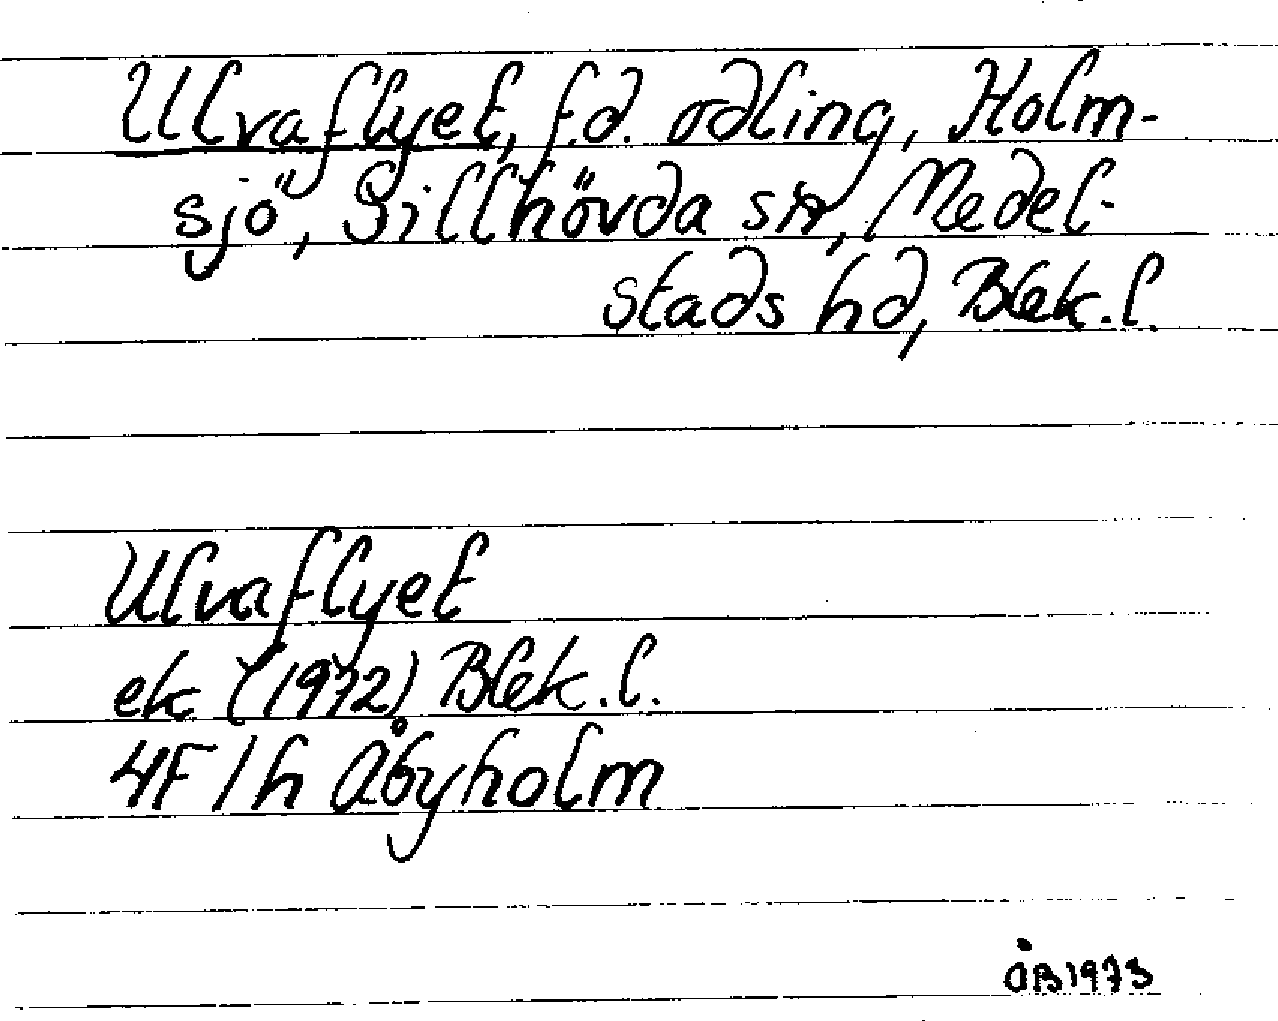 Ulvaflyet, f.d. odling, Holm-
sjö, Sillhövda sn, Medel-
stads hd, Blek.l.
Ulvaflyet
ek (1972) Blek.l.
4F1h Åbyholm
ÅB1973